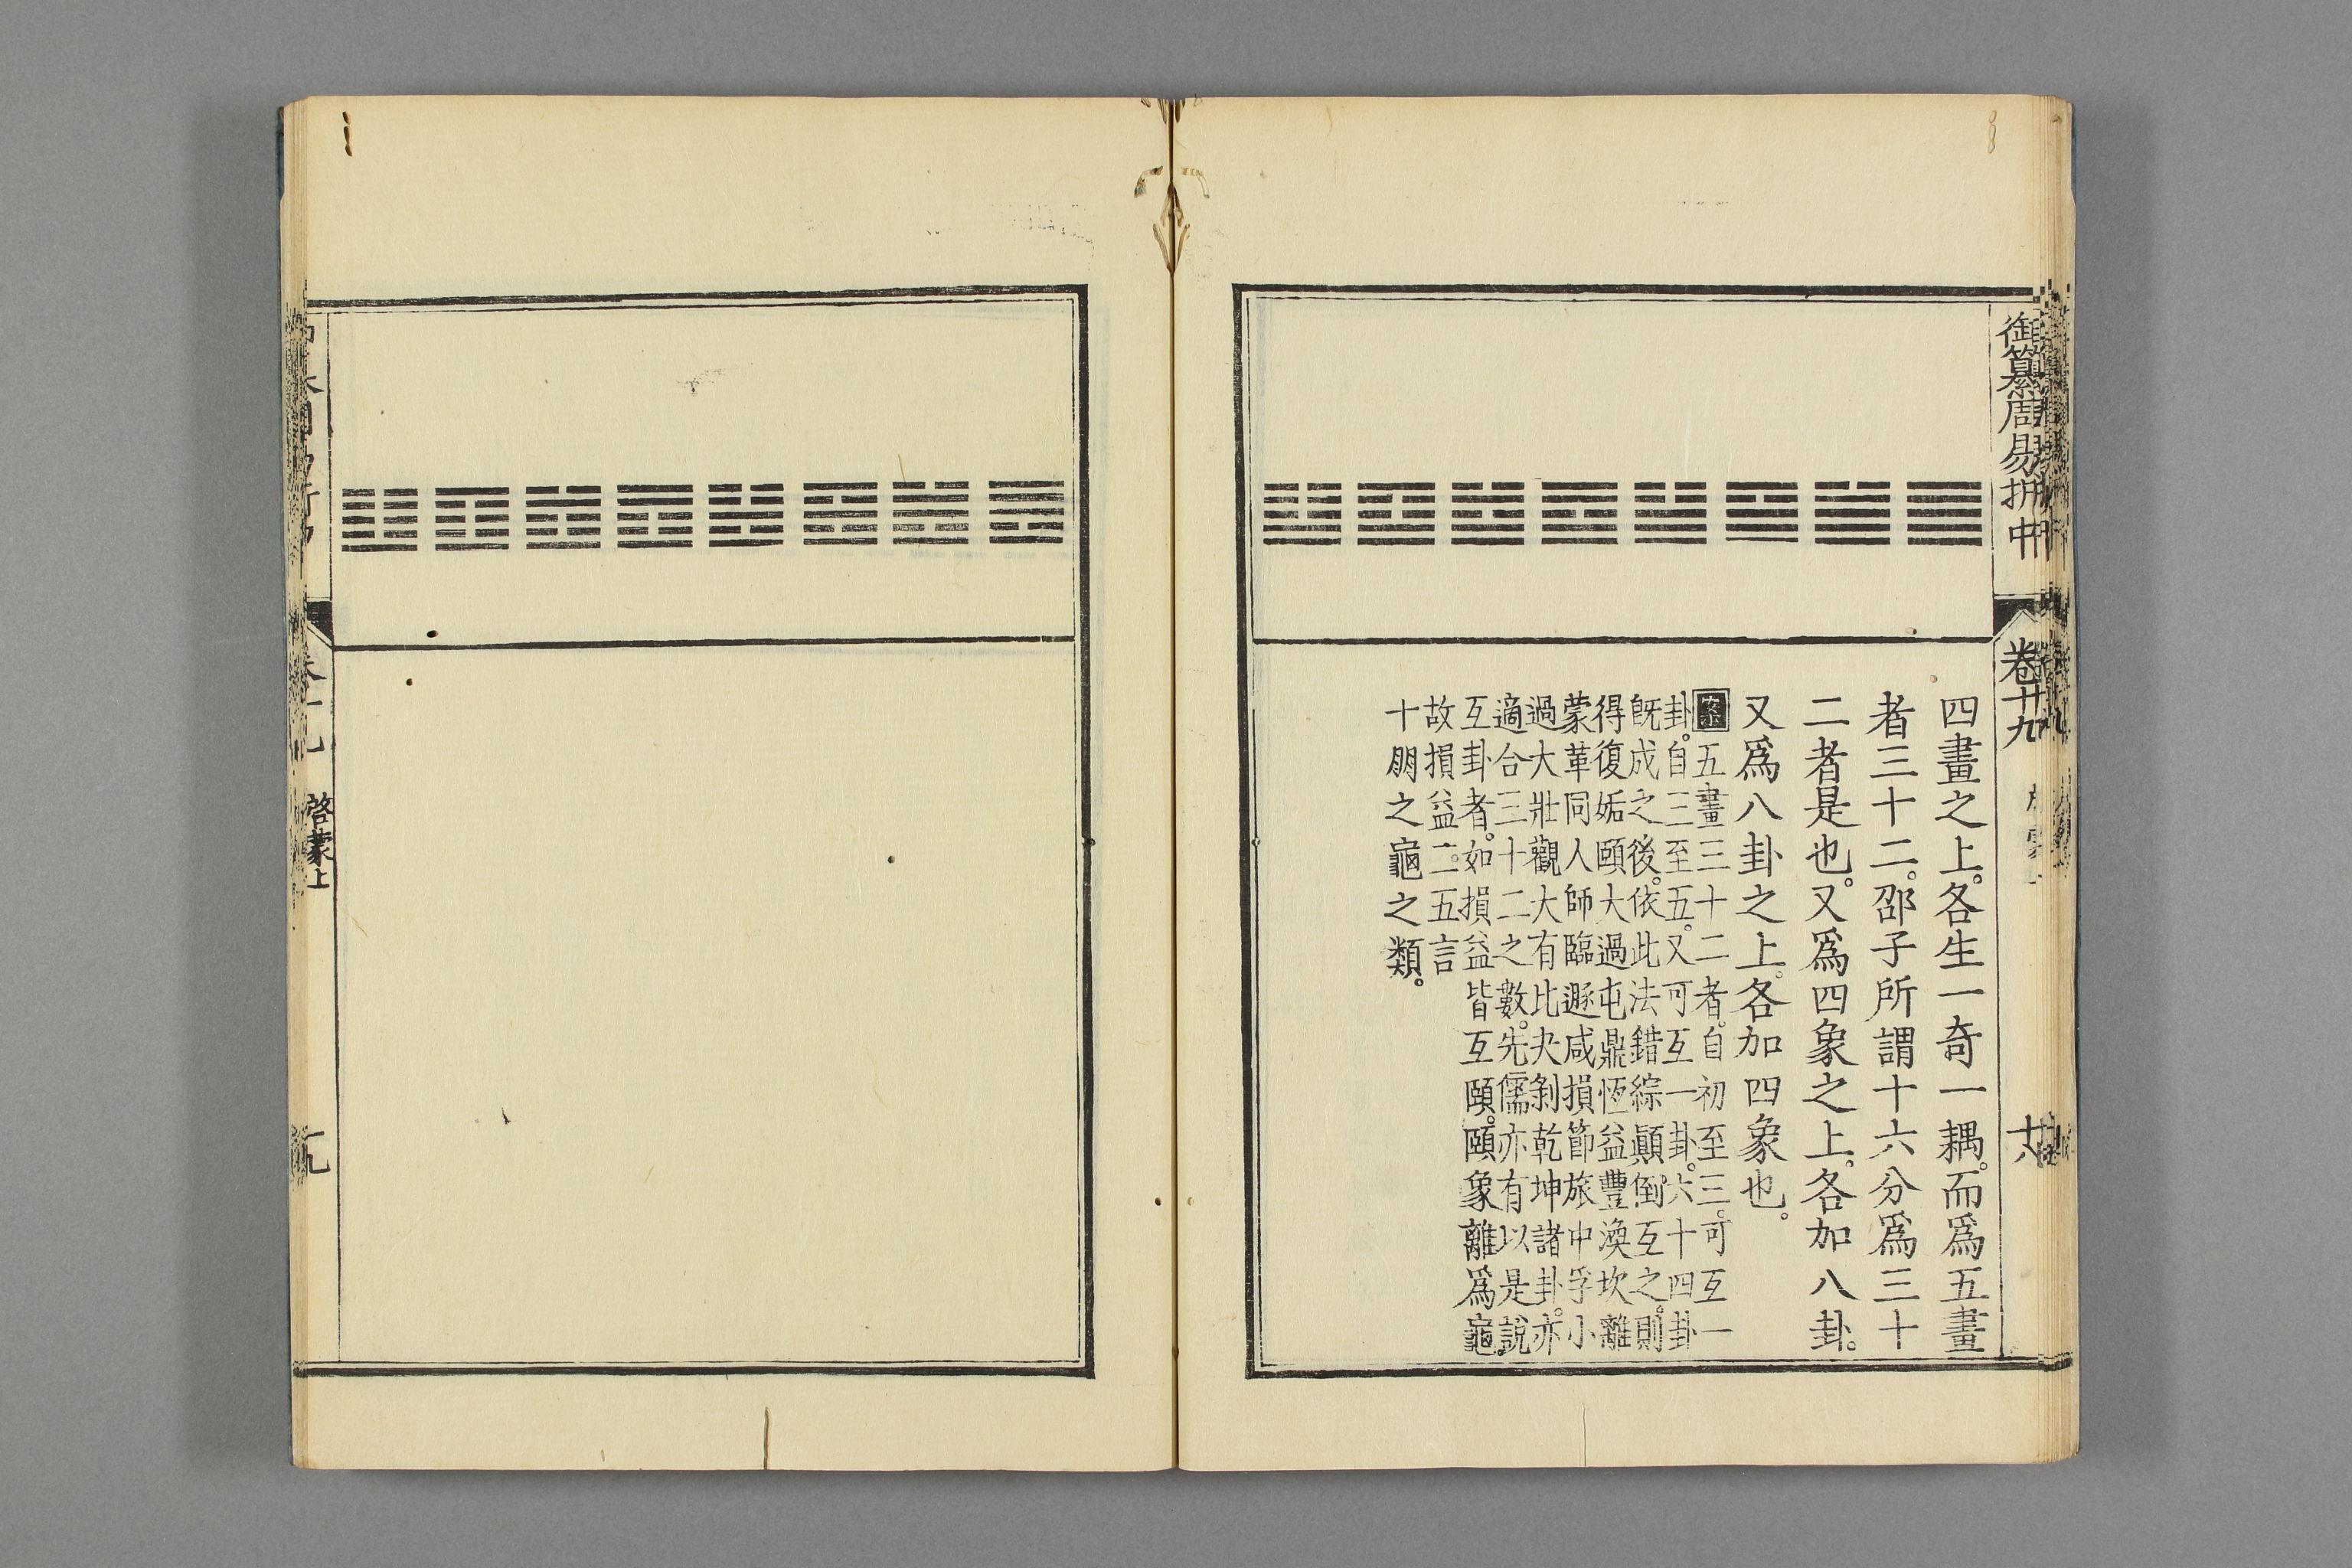 御纂周易折中
卷十九
十八
四畫之上。各生一奇一耦。而爲五畫
者三十二。邵子所謂十六分爲三十
二者是也。又爲四象之上。各加八卦。
又爲八卦之上。各加四象也。
案五畫三十二者。自初至三。可互一
卦。自三至五。又可互一卦。六十四卦
旣成之後。依此法錯綜顚倒互之。則
得復姤頤大過屯鼎恆益豐渙坎離
蒙革同人師臨遯咸損節旅中孚小
過大壯觀大有比夬剝乾坤諸卦。亦
適合三十二之數。先儒亦有以是說
互卦者。如損益皆互頤。頤象離爲龜。
故損益二五言
十朋之龜之類。
啓蒙上